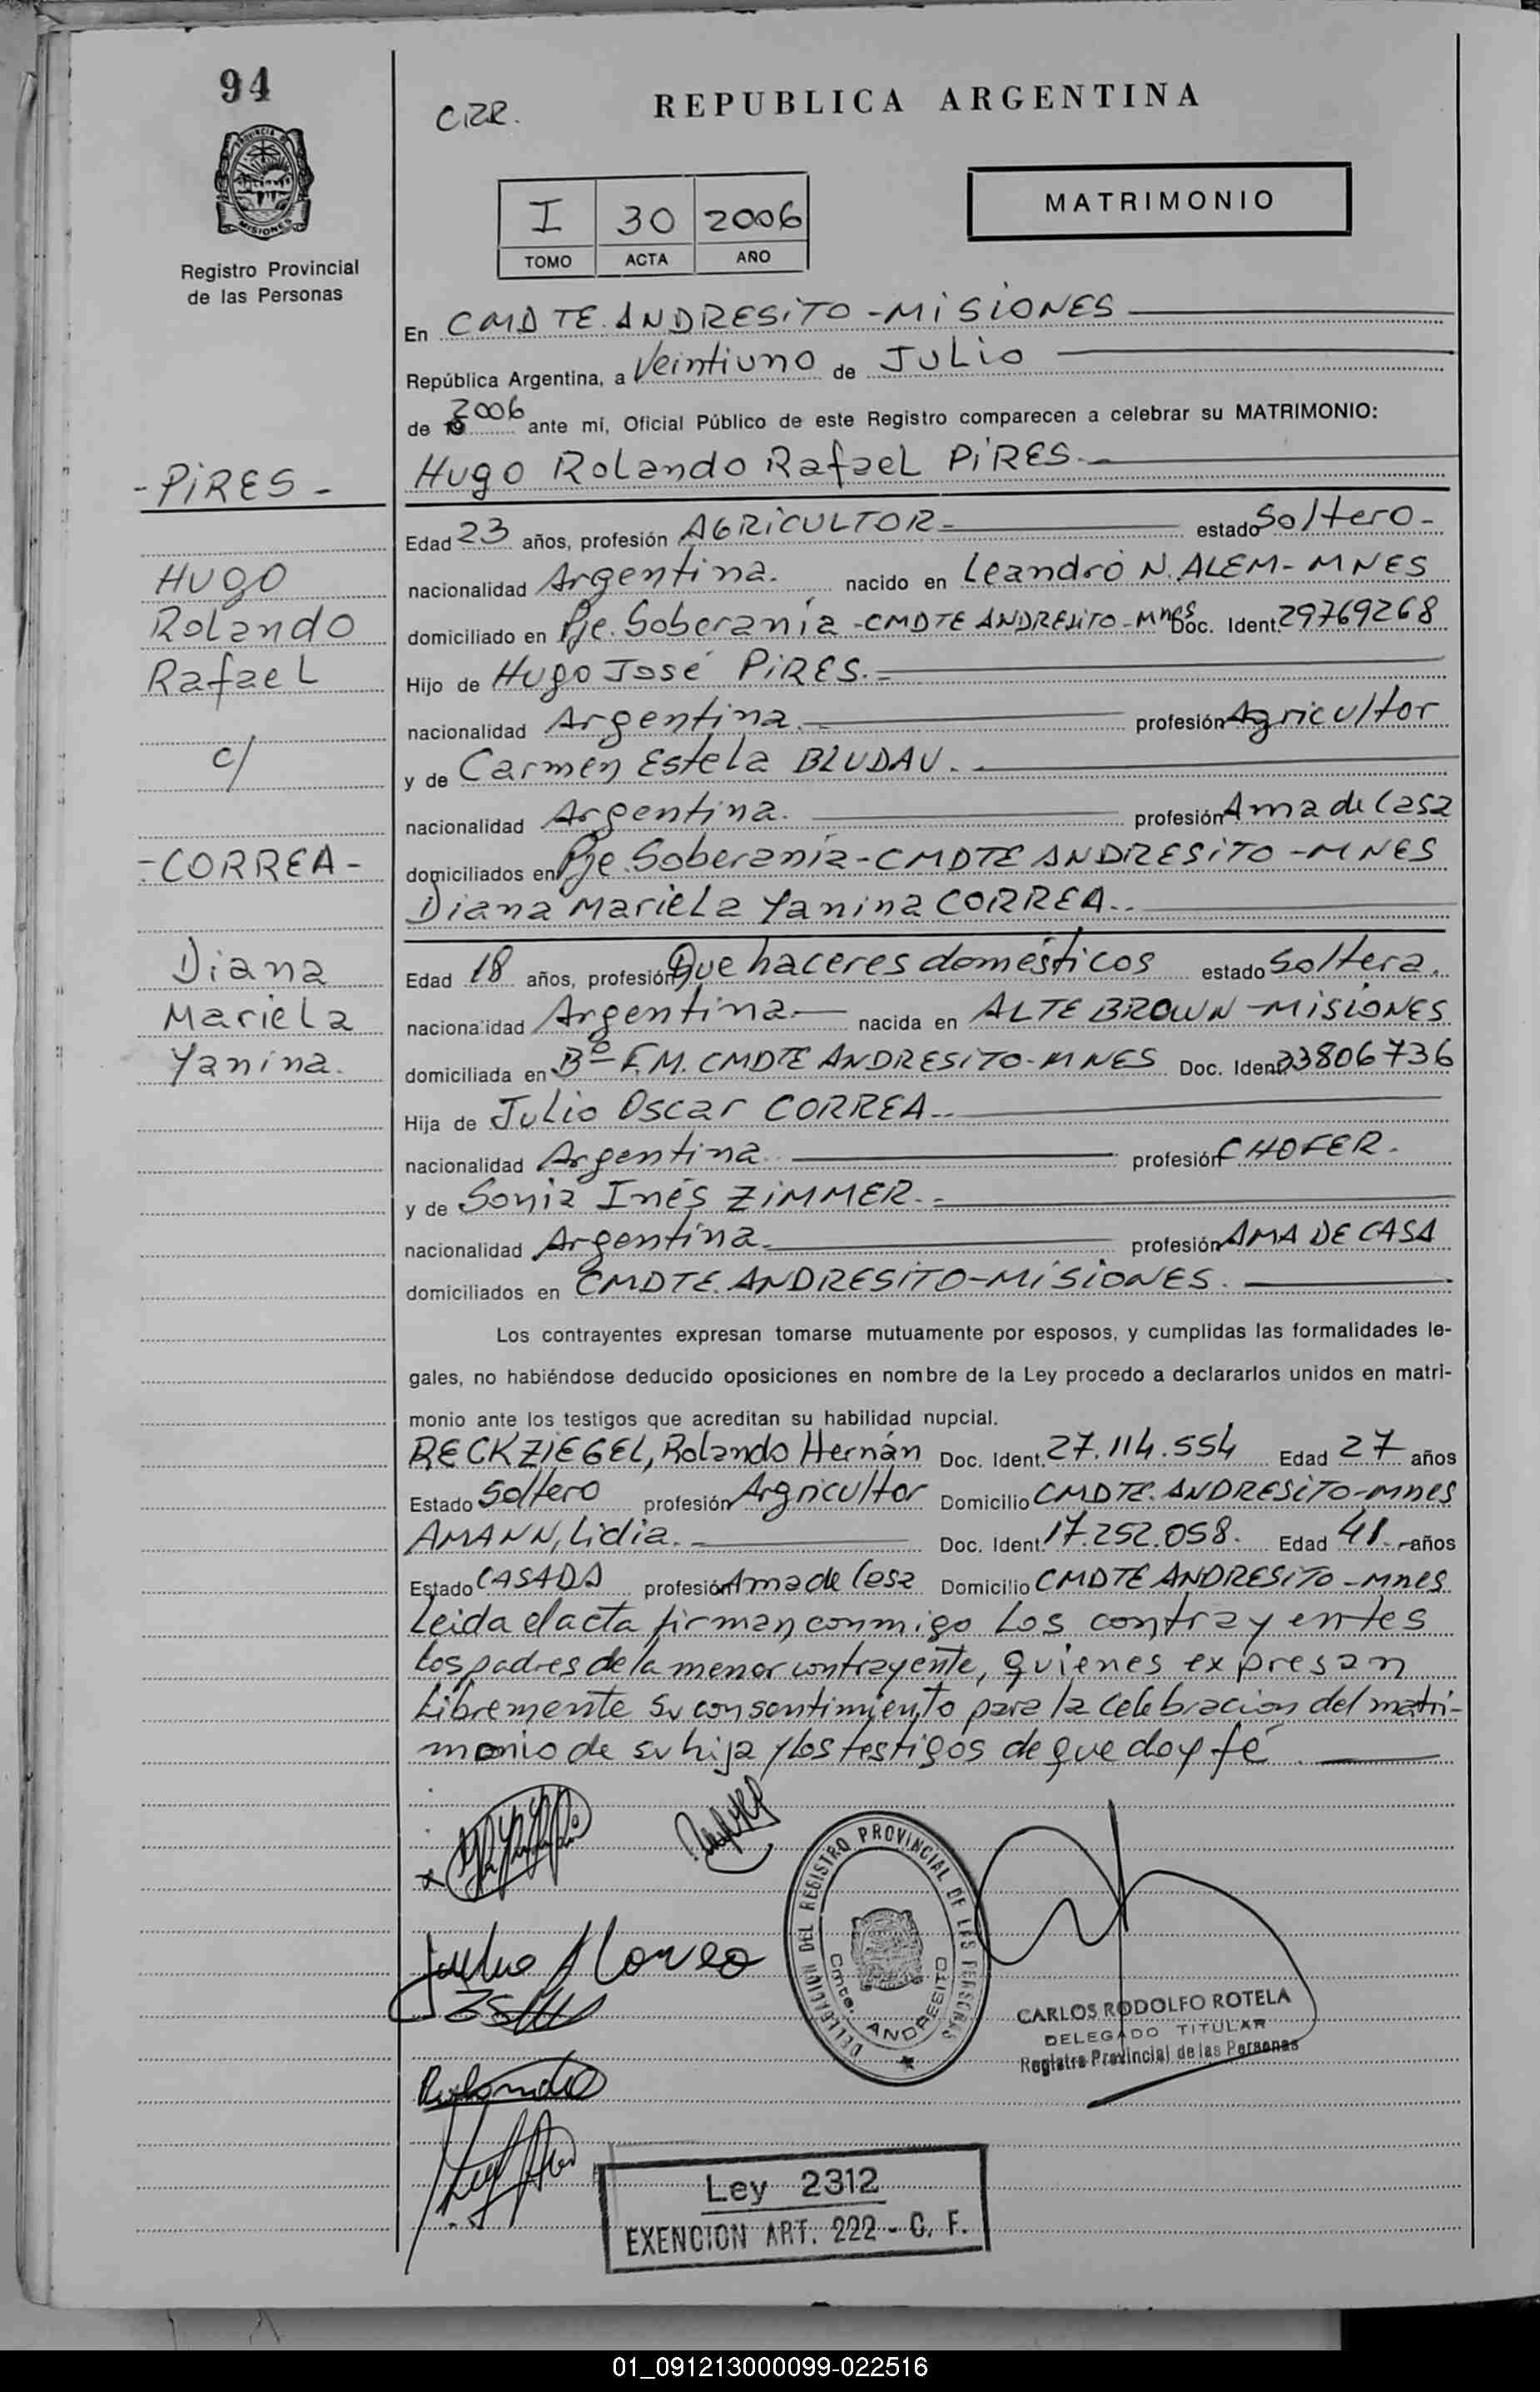 94
PROVINCIA DE
MISIONES
Registro Provincial
de las Personas
CIZR.
REPUBLICA ARGENTINA
MATRIMONIO
I 30 2006
TOMO ACTA AÑO
En CMDTE. ANDRESITO - MISIONES
República Argentina, a Veintiuno de JULIO
de 2006 ante mi, Oficial Público de este Registro comparecen a celebrar su MATRIMONIO:
- PIRES -
Hugo Rolando Rafael PIRES.-
Edad 23 años, profesión AGRICULTOR- estado Soltero-
HUGO
nacionalidad Argentina. nacido en Leandro N. ALEM - MNES
Rolando
domiciliado en Pje. Soberanía - CMDTE ANDRESITO - Mnes Doc. Ident. 29769268
Rafael
Hijo de Hugo José PIRES.-
nacionalidad Argentina.- profesión Agricultor
c/
y de Carmen Estela BLUDAU.-
nacionalidad Argentina. profesión Ama de Casa
- CORREA -
domiciliados en Pje. Soberanía - CMDTE ANDRESITO - MNES
Diana Mariela Yanina CORREA..
Diana
Edad 18 años, profesión Que haceres domésticos estado Soltera.
Mariela
nacionalidad Argentina.- nacida en ALTE BROWN - MISIONES
Yanina.
domiciliada en Bº F.M. CMDTE ANDRESITO - MNES Doc. Ident. 33806736
Hija de Julio Oscar CORREA..
nacionalidad Argentina profesión CHOFER.
y de Sonia Inés ZIMMER.-
nacionalidad Argentina. profesión AMA DE CASA
domiciliados en CMDTE. ANDRESITO - MISIONES.
Los contrayentes expresan tomarse mutuamente por esposos, y cumplidas las formalidades le-
gales, no habiéndose deducido oposiciones en nombre de la Ley procedo a declararlos unidos en matri-
monio ante los testigos que acreditan su habilidad nupcial.
RECKZIEGEL, Rolando Hernán Doc. Ident. 27.114.554 Edad 27 años
Estado Soltero profesión Argricultor Domicilio CMDTE. ANDRESITO - mnes
AMANN, Lidia. Doc. Ident. 17.252.058. Edad 41.- años
Estado CASADA profesión Ama de Casa Domicilio CMDTE ANDRESITO - Mnes
Leida el acta firman conmigo Los contrayentes
los padres de la menor contrayente, quienes expresan
Libremente su consentimiento para la celebración del matri-
monio de su hija y los testigos de que doy fé
DELEGACION DEL REGISTRO PROVINCIAL DE LAS PERSONAS
Cmte. ANDRESITO
CARLOS RODOLFO ROTELA
DELEGADO TITULAR
Registro Provincial de las Personas
Rolando
Ley 2312
EXENCION ART. 222 - C. F.
01_091213000099-022516